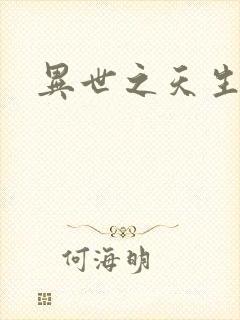 異世之天生
何海明